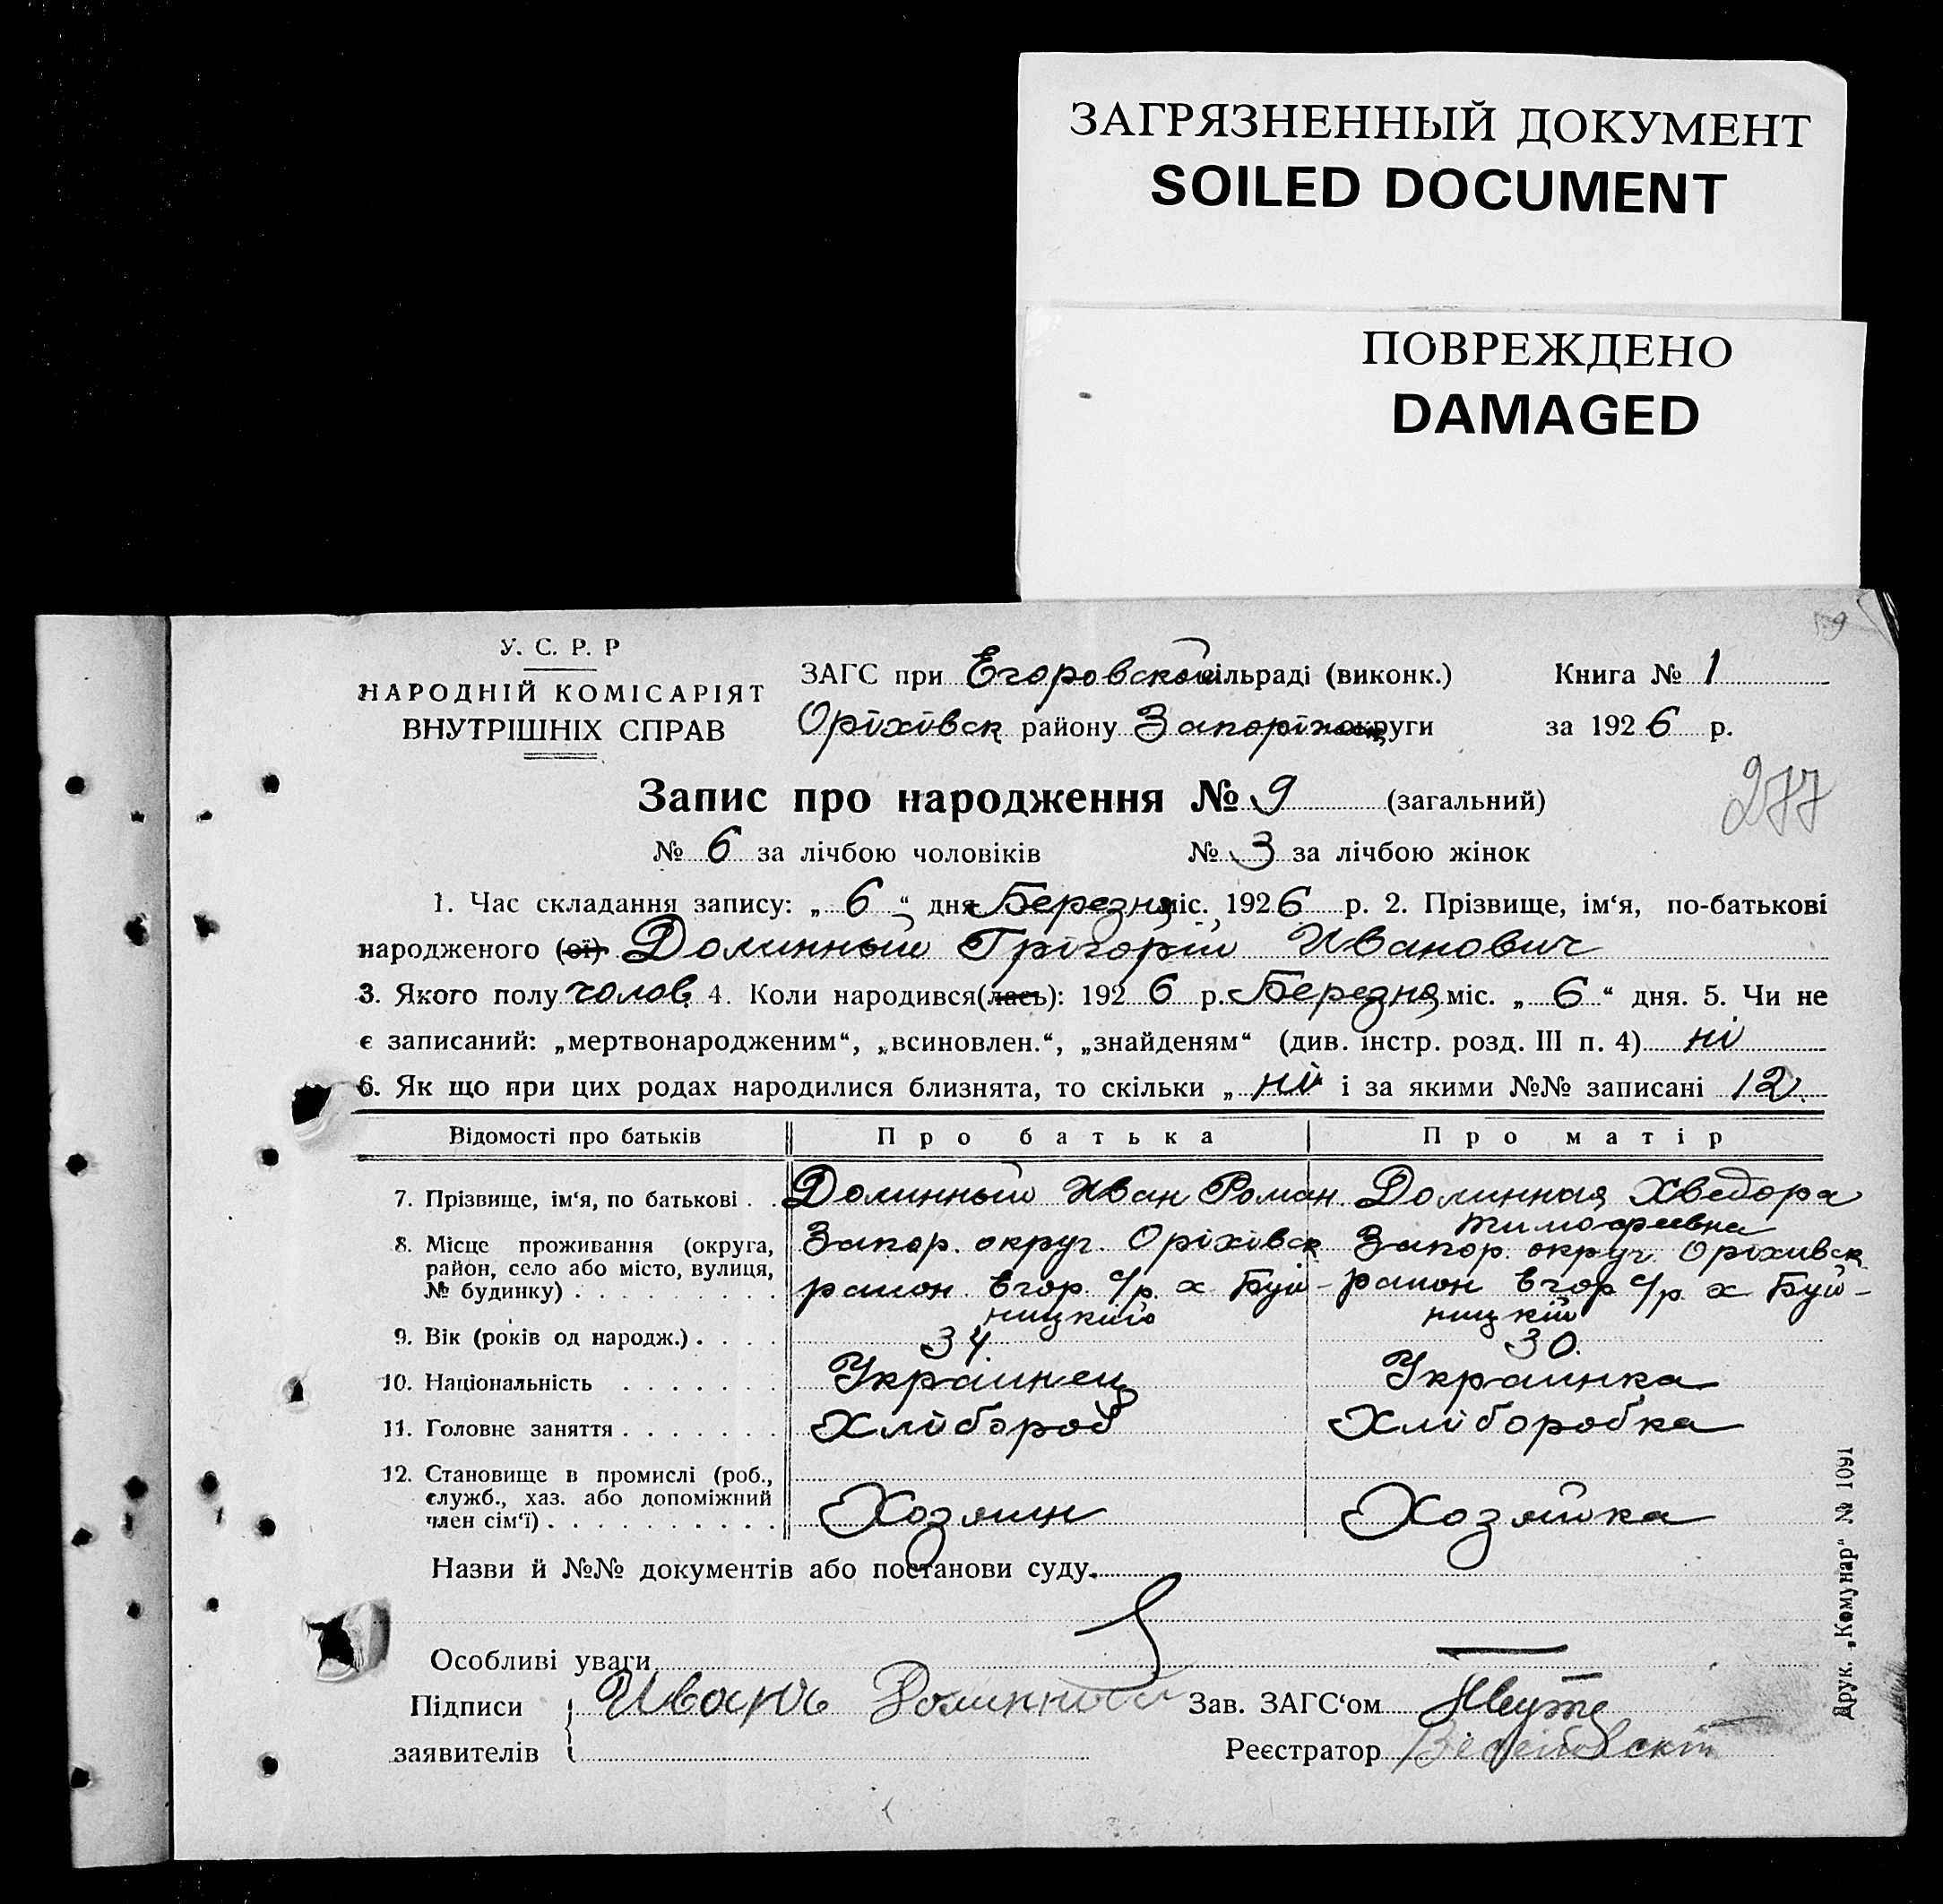 ЗАГРЯЗНЕННЫЙ ДОКУМЕНТ
SOILED DOCUMENT
ПОВРЕЖДЕНО
DAMAGED
У. С. Р. Р
НАРОДНІЙ КОМІСАРІЯТ
ВНУТРІШНІХ СПРАВ
ЗАГС при Егоровской сільраді (виконк.) Книга № 1
Оріхівск району Запоріж округи за 1926 р.
277
Запис про народження № 9 (загальний)
№ 6 за лічбою чоловіків № 3 за лічбою жінок
1. Час складання запису: „ 6 “ дня Березня міс. 1926 р. 2. Прізвище, ім‘я, по-батькові
народженого (ої) Долинный Грігорій Иванович
3. Якого полу чолов. 4. Коли народився(лась): 1926 р. Березня міс. „ 6 “ дня. 5. Чи не
є записаний: „мертвонародженим“, „всиновлен.“, „знайденям“ (див. інстр. розд. III п. 4) ні
6. Як що при цих родах народилися близнята, то скільки „ ні і за якими №№ записані 12.
Відомості про батьків Про батька Про матір
7. Прізвище, ім‘я, по батькові . . Долинный Иван Роман. Долинная Хведора
Тимофеевна
8. Місце проживання (округа, район, село або місто, вулиця, № будинку) . Запор. округ. Оріхівск Запор. округ. Оріхивск
район Егор. с/р. х Буй- район Егор с/р. х Буй-
ницкій ницкій
9. Вік (років од народж.) . . . . 34 30.
10. Національність . . . . . . . Українец Украинка
11. Головне заняття . . . . . . . Хлібороб Хліборобка
12. Становище в промислі (роб., служб., хаз. або допоміжний член сім‘ї) . Хозяин Хозяйка
Назви й №№ документів або постанови суду.
Особливі уваги
Підписи Иванъ Долинный Зав. ЗАГС‘ом
заявителів Реєстратор
Друк. „Комунар“ № 1091